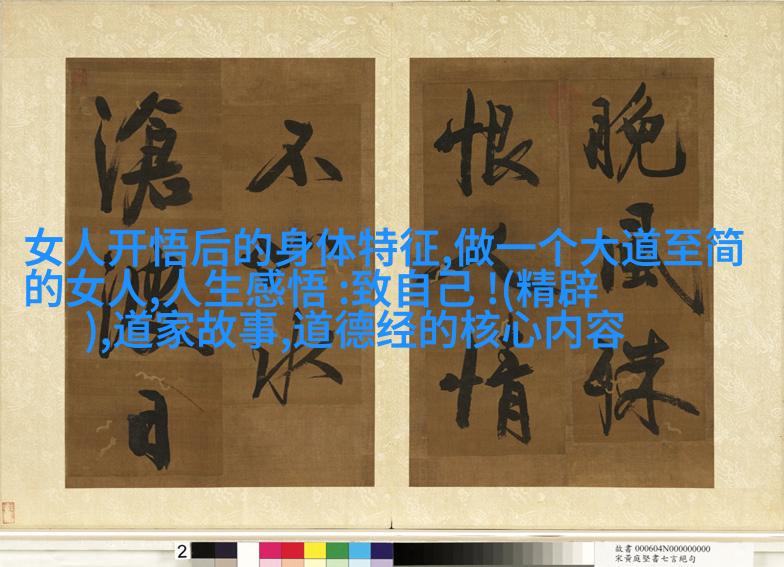 晚風殊
恨情
不水
滄日
女人开悟后的身体特征,做一个大道至简
的女人,人生感悟 :致自己 !(精辟
),道家故事,道德经的核心内容
2
故書 000604N000000000
宋黃庭堅書七言絕句